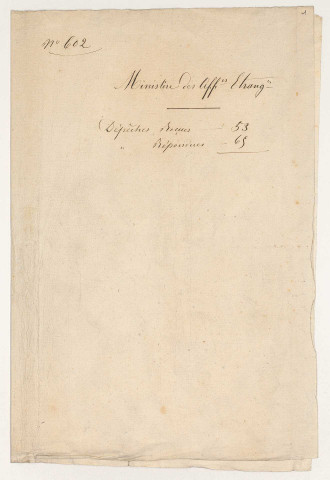 1
N° 602
Ministre des Aff.es Etrang.es
Dépêches Reçues - 53
" Réponses - 65